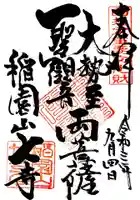 奉拝
令和三年
九月四日
大勢至
両菩薩
聖観音
稲園山
七寺